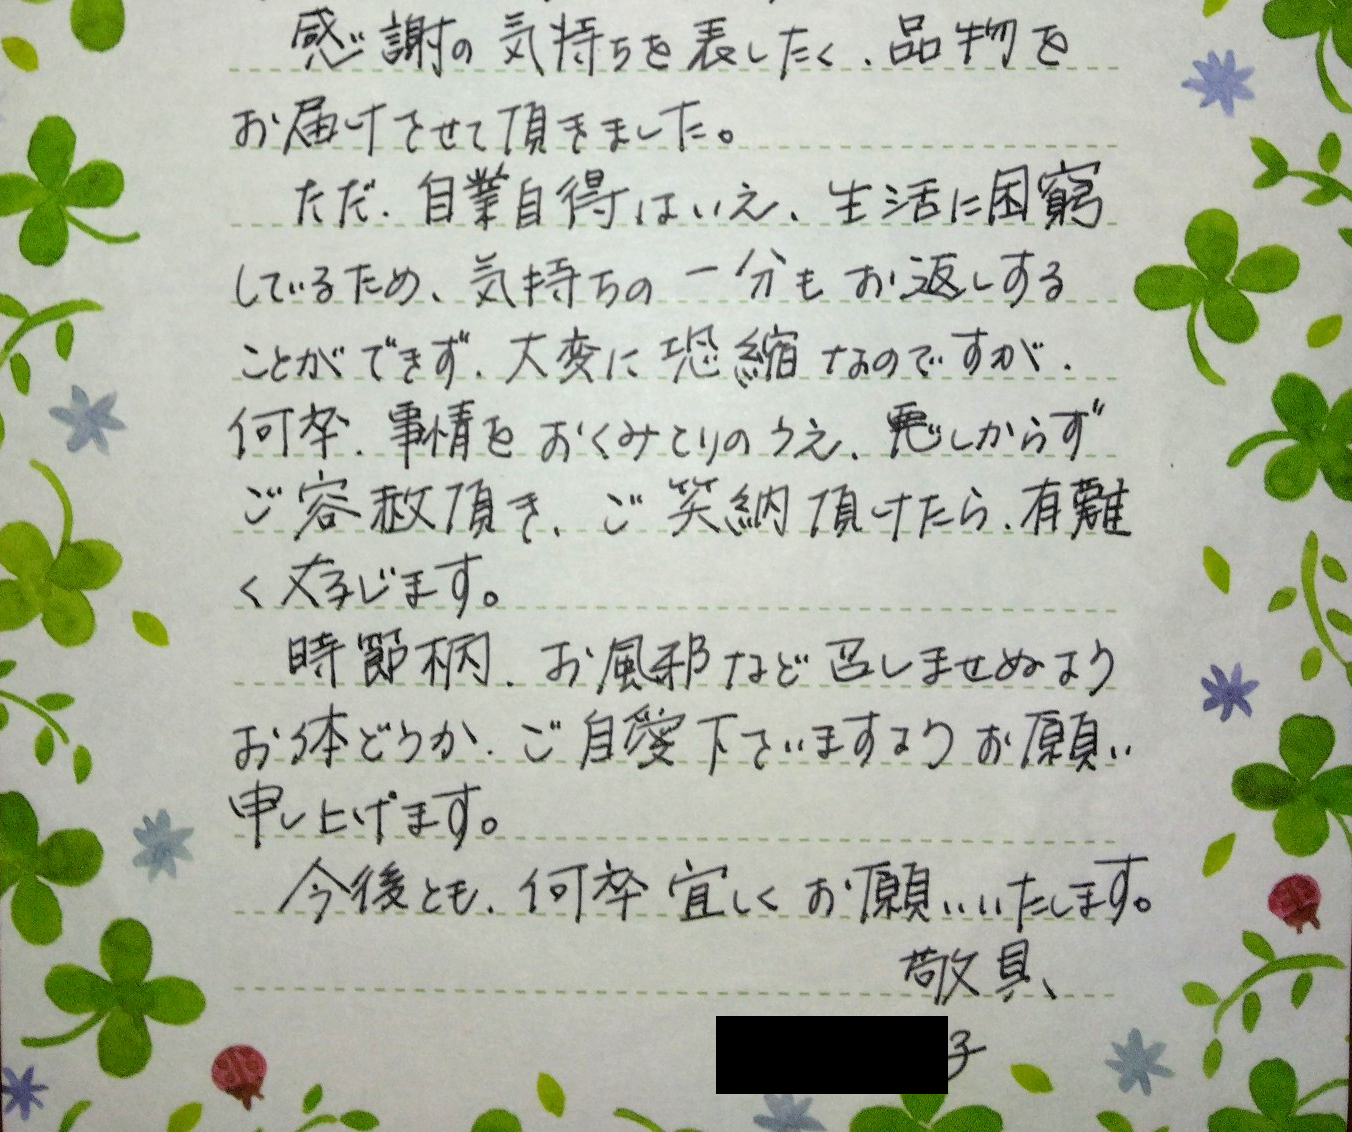 感謝の気持ちを表したく、品物を
お届けさせて頂きました。
ただ、自業自得はいえ、生活に困窮
しているため、気持ちの一分もお返しする
ことができず、大変に恐縮なのですが、
何卒、事情をおくみとりのうえ、悪しからず
ご容赦頂き、ご笑納頂けたら、有難
く存じます。
時節柄、お風邪など召しませぬよう
お体どうか、ご自愛下さいますようお願い
申し上げます。
今後とも、何卒宜しくお願いいたします。
敬具、
子